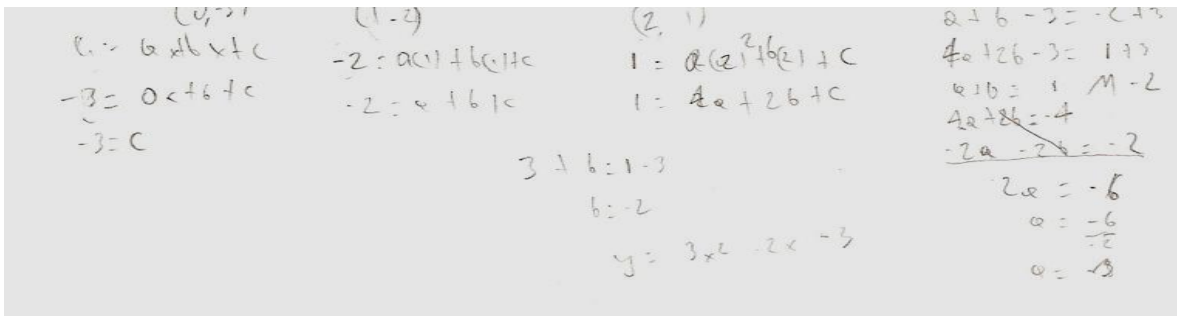 (0,-3)
-3 = 0x+b+c
-3 = c
(1-2)
-2 = a(1)+b(1)+c
-2 = a+b+c
(2, 1)
1 = a(2)²+b(2)+c
1 = 4a+2b+c
3 + b = 1-3
b = -2
y = 3x² -2x -3
a+b-3 = -2+3
4a+2b-3 = 1+3
a+b = 1 M-2
4a+2b = -4
-2a -2b = -2
2a = -6
a = -6
-2